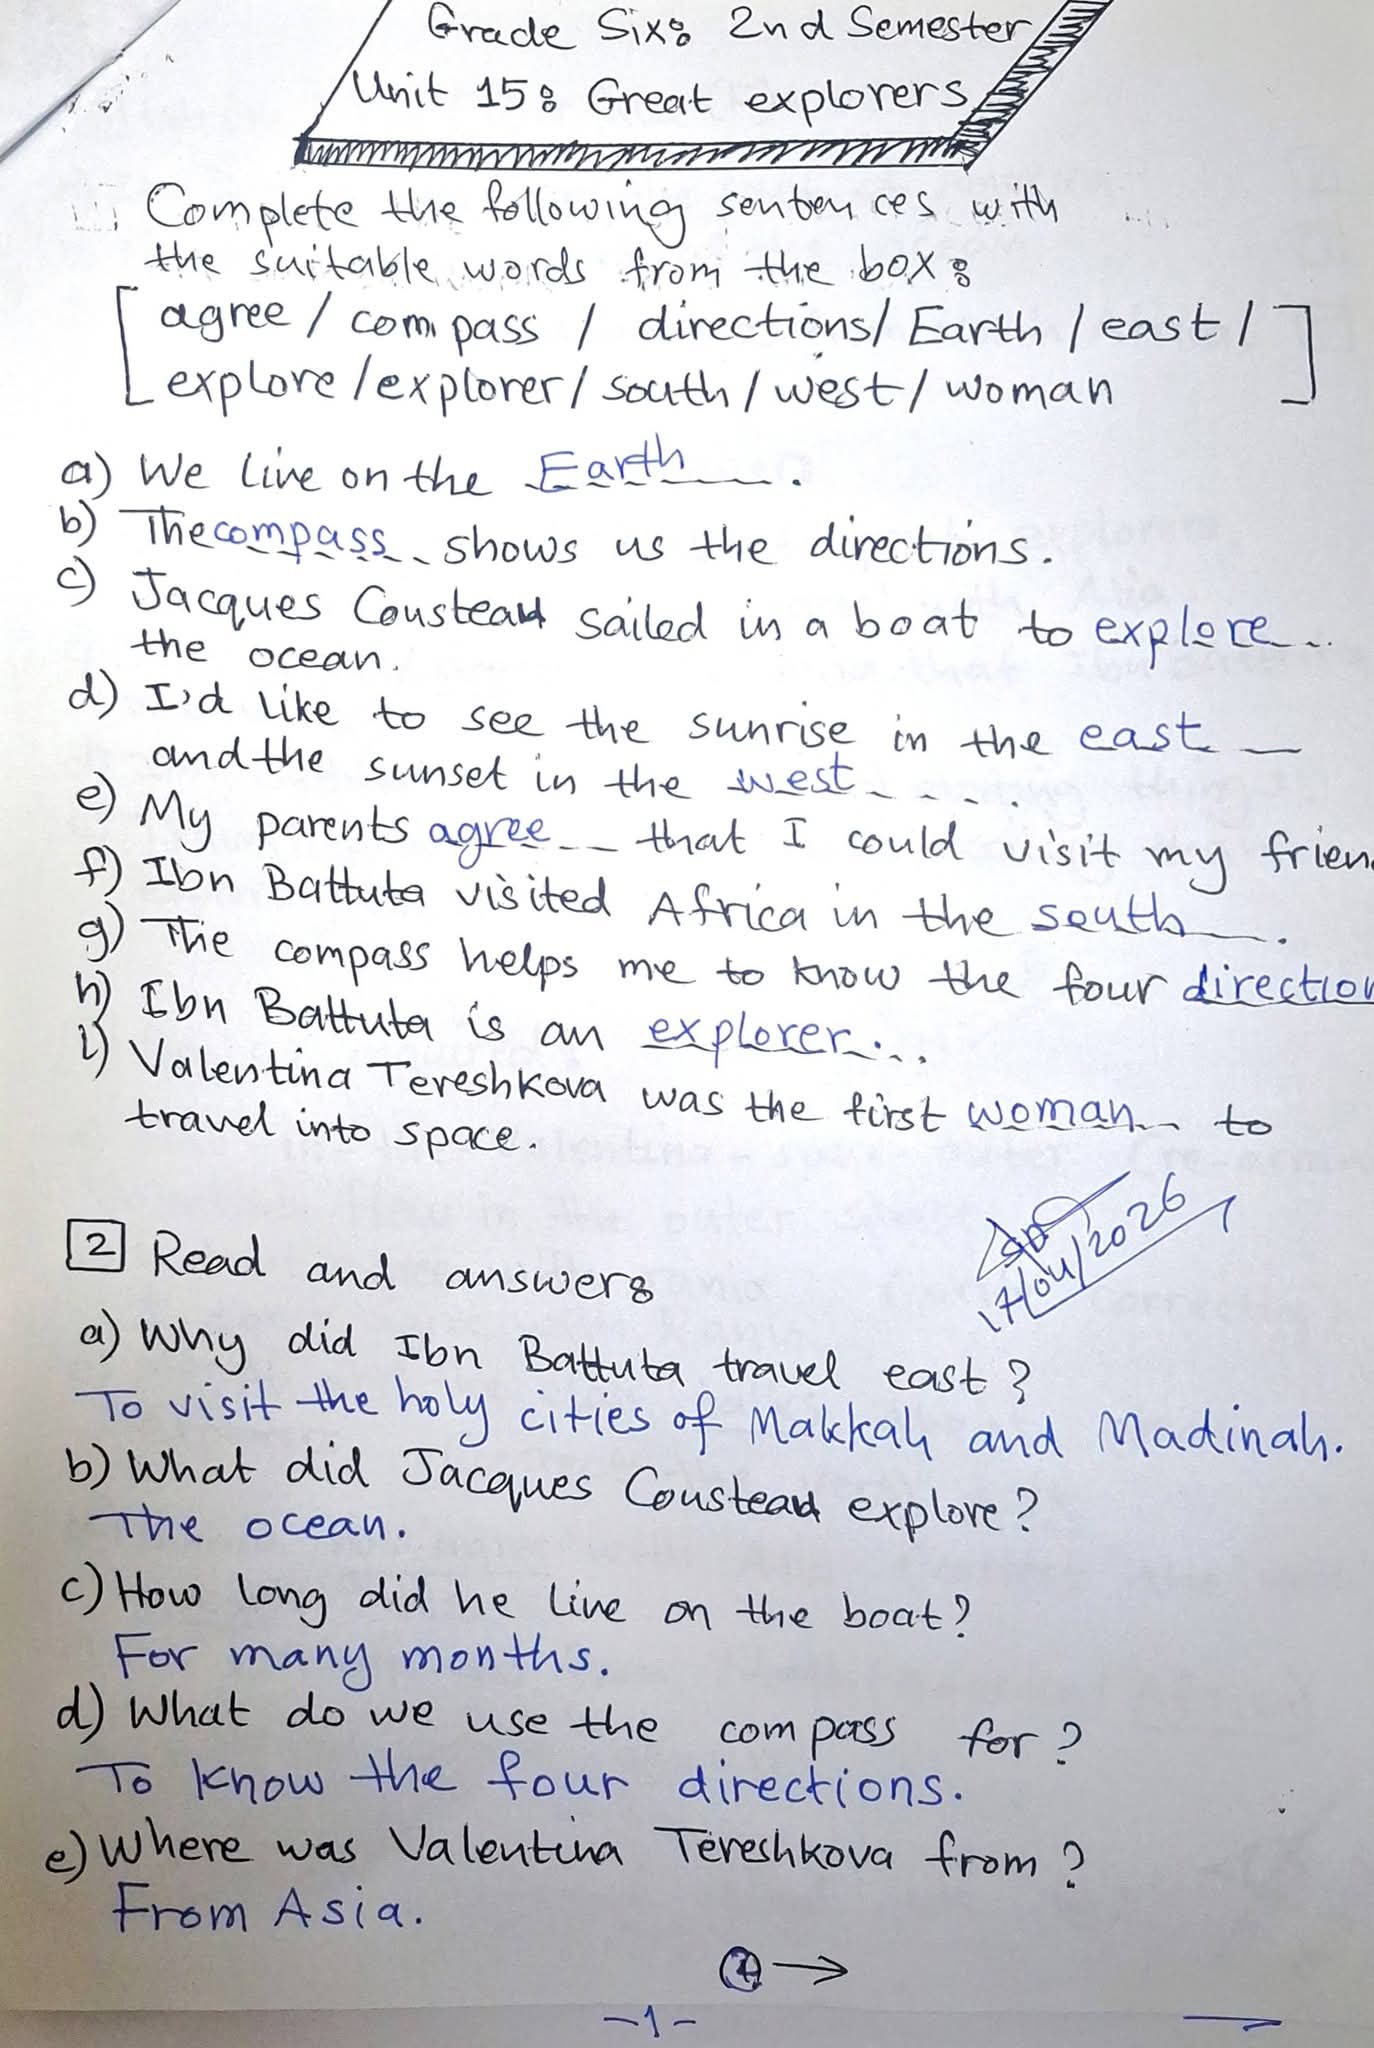 Grade Six: 2nd Semester
Unit 15: Great explorers
Complete the following sentences with
the suitable words from the box:
[agree / compass / directions / Earth / east /
explore / explorer / south / west / woman]
a) We live on the Earth.
b) The compass shows us the directions.
c) Jacques Cousteau sailed in a boat to explore
the ocean.
d) I'd like to see the sunrise in the east
and the sunset in the west.
e) My parents agree that I could visit my frien
f) Ibn Battuta visited Africa in the south.
g) The compass helps me to know the four direction
h) Ibn Battuta is an explorer.
i) Valentina Tereshkova was the first woman to
travel into space.
17/04/2026
2 Read and answer:
a) Why did Ibn Battuta travel east?
To visit the holy cities of Makkah and Madinah.
b) What did Jacques Cousteau explore?
The ocean.
c) How long did he live on the boat?
For many months.
d) What do we use the compass for?
To know the four directions.
e) Where was Valentina Tereshkova from?
From Asia.
-1-